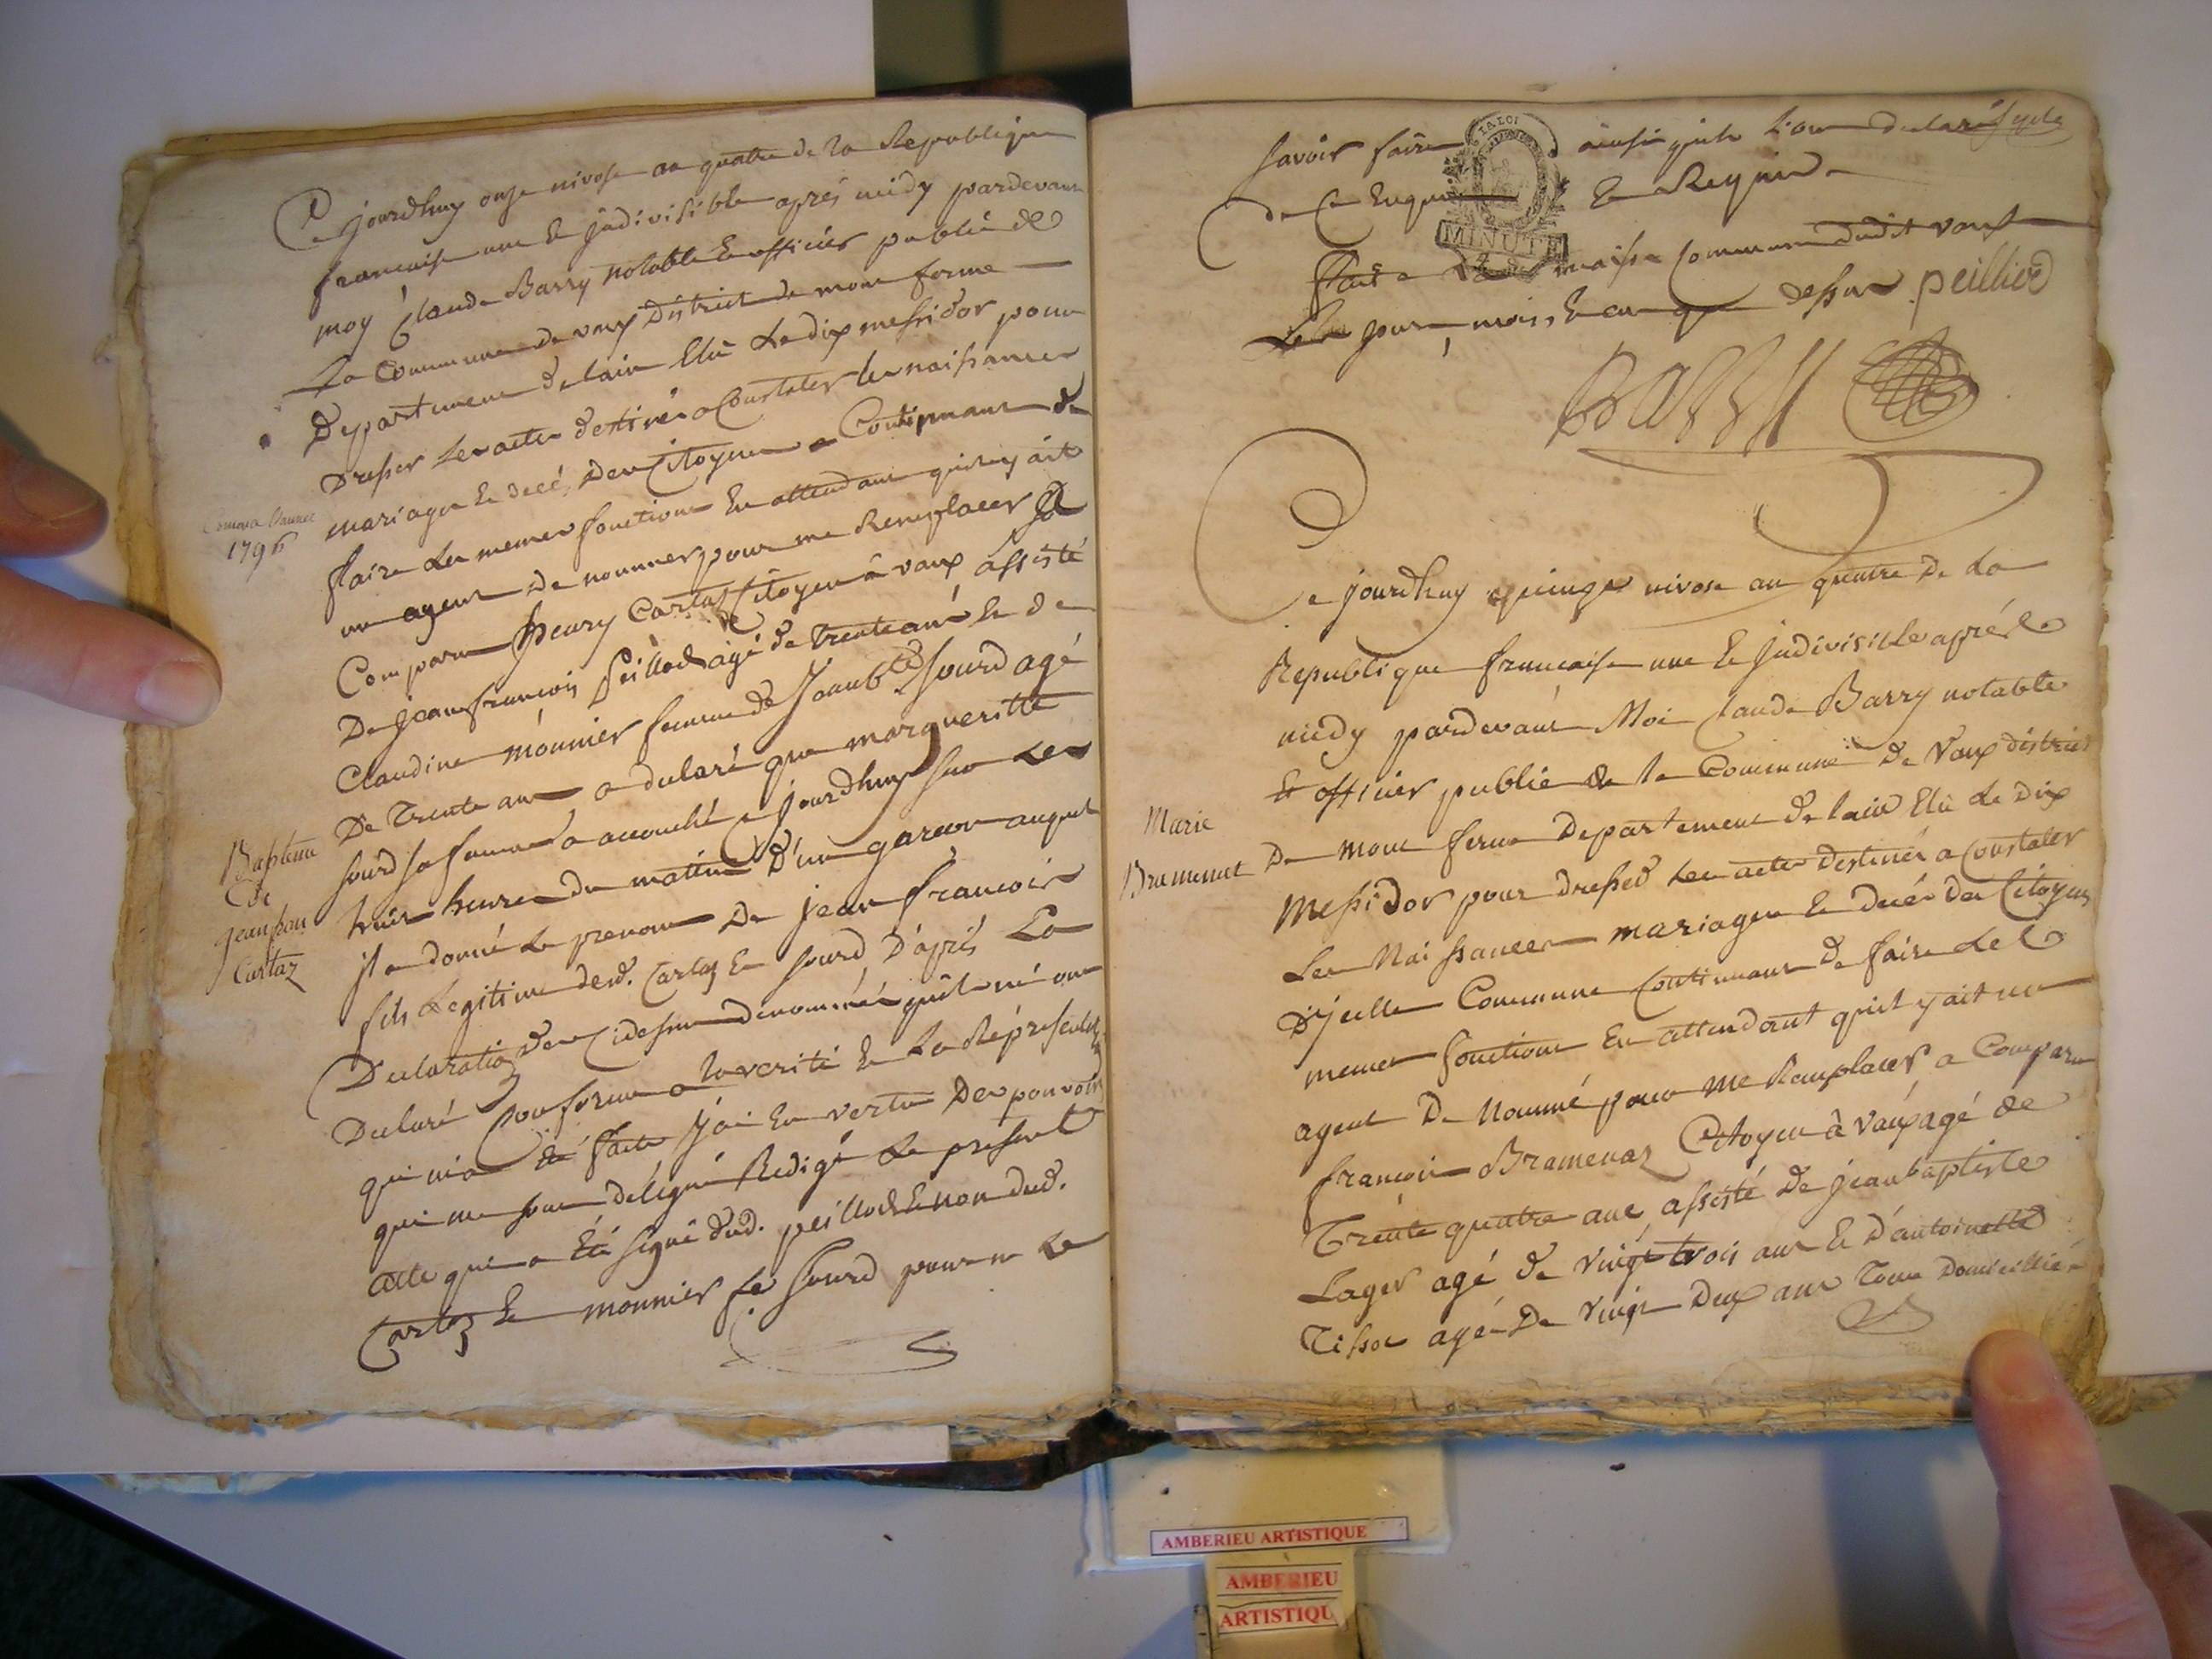 Ce jourdhuy onze nivose an quatre de la Republique
francaise une Et jndivisible aprés midy pardevant
moy Claude Barry notable Et officier public de
La Commune de vaux District de mont ferme
Departement de lain Elû Le dix messidor pour
Dresser Les actes destinés a Constater les naissances
mariages Et decé, Des Citoyens Continuant de
faire Les memes fonctions En attendant quil y ait
un agent De nommer pour me Remplacer A
Comparu henry Cartaz Citoyen â vaux assisté
De jean francois peillod agé de trente ans Et de
Claudine mounier femme de Jean bte. Sourd agé
De trente ans a declaré que margueritte
Sourd sa femme a accouché ce jourdhuy sur Les
huit heures du matin D'un garcon auquel
jl a donné Le prenom De jean francois
fils Legitime desd. Cartaz Et Sourd D'aprés La
Declaration des Cidessus denommés quils m'ont
Declaré Conforme a la verité Et La Représentation
qui m'a Eté faite j'ai En vertu Des pouvoirs
qui me sont delegué Redigé Le present
acte qui a Eté signé dud. peillod Et non dud.
Cartaz Et mounier fe Sourd pour ne Le
Commence Lannée
1796
Bapteme
de
jean fran
Cartaz
savoir faire ainsi quils L'ont declaré
de Ce Enquis Et Requis
Fait a La maison Commune dudit vaux
Les jour, mois, Et an que dessus peilliod
BARRY
Ce jourdhuy quinze nivose an quatre De La
Republique francaise une Et jndivisible aprés
midy pardevant Moi Claude Barry notable
Et officier public de la Commune De Vaux district
De mont ferme Departement De lain Elû Le Dix
Messidor pour dresser Les actes destinés a Constater
Les Naissances mariages Et decés des Citoyens
D'jcelle Commune Continuant De faire Les
memes fonctions En attendant quil y ait un
agent De Nommé pour me Remplacer a Comparu
francois Bramenaz Citoyen à vaux agé de
Trente quatre ans assisté De jean baptiste
Lager agé de vingt trois ans Et D'antoinette
Tissot agé De vingt Deux ans Tous Domiciliés
Marie
Bramenet
LA LOI
MINUTE
AMBERIEU ARTISTIQUE
AMBERIEU
ARTISTIQU